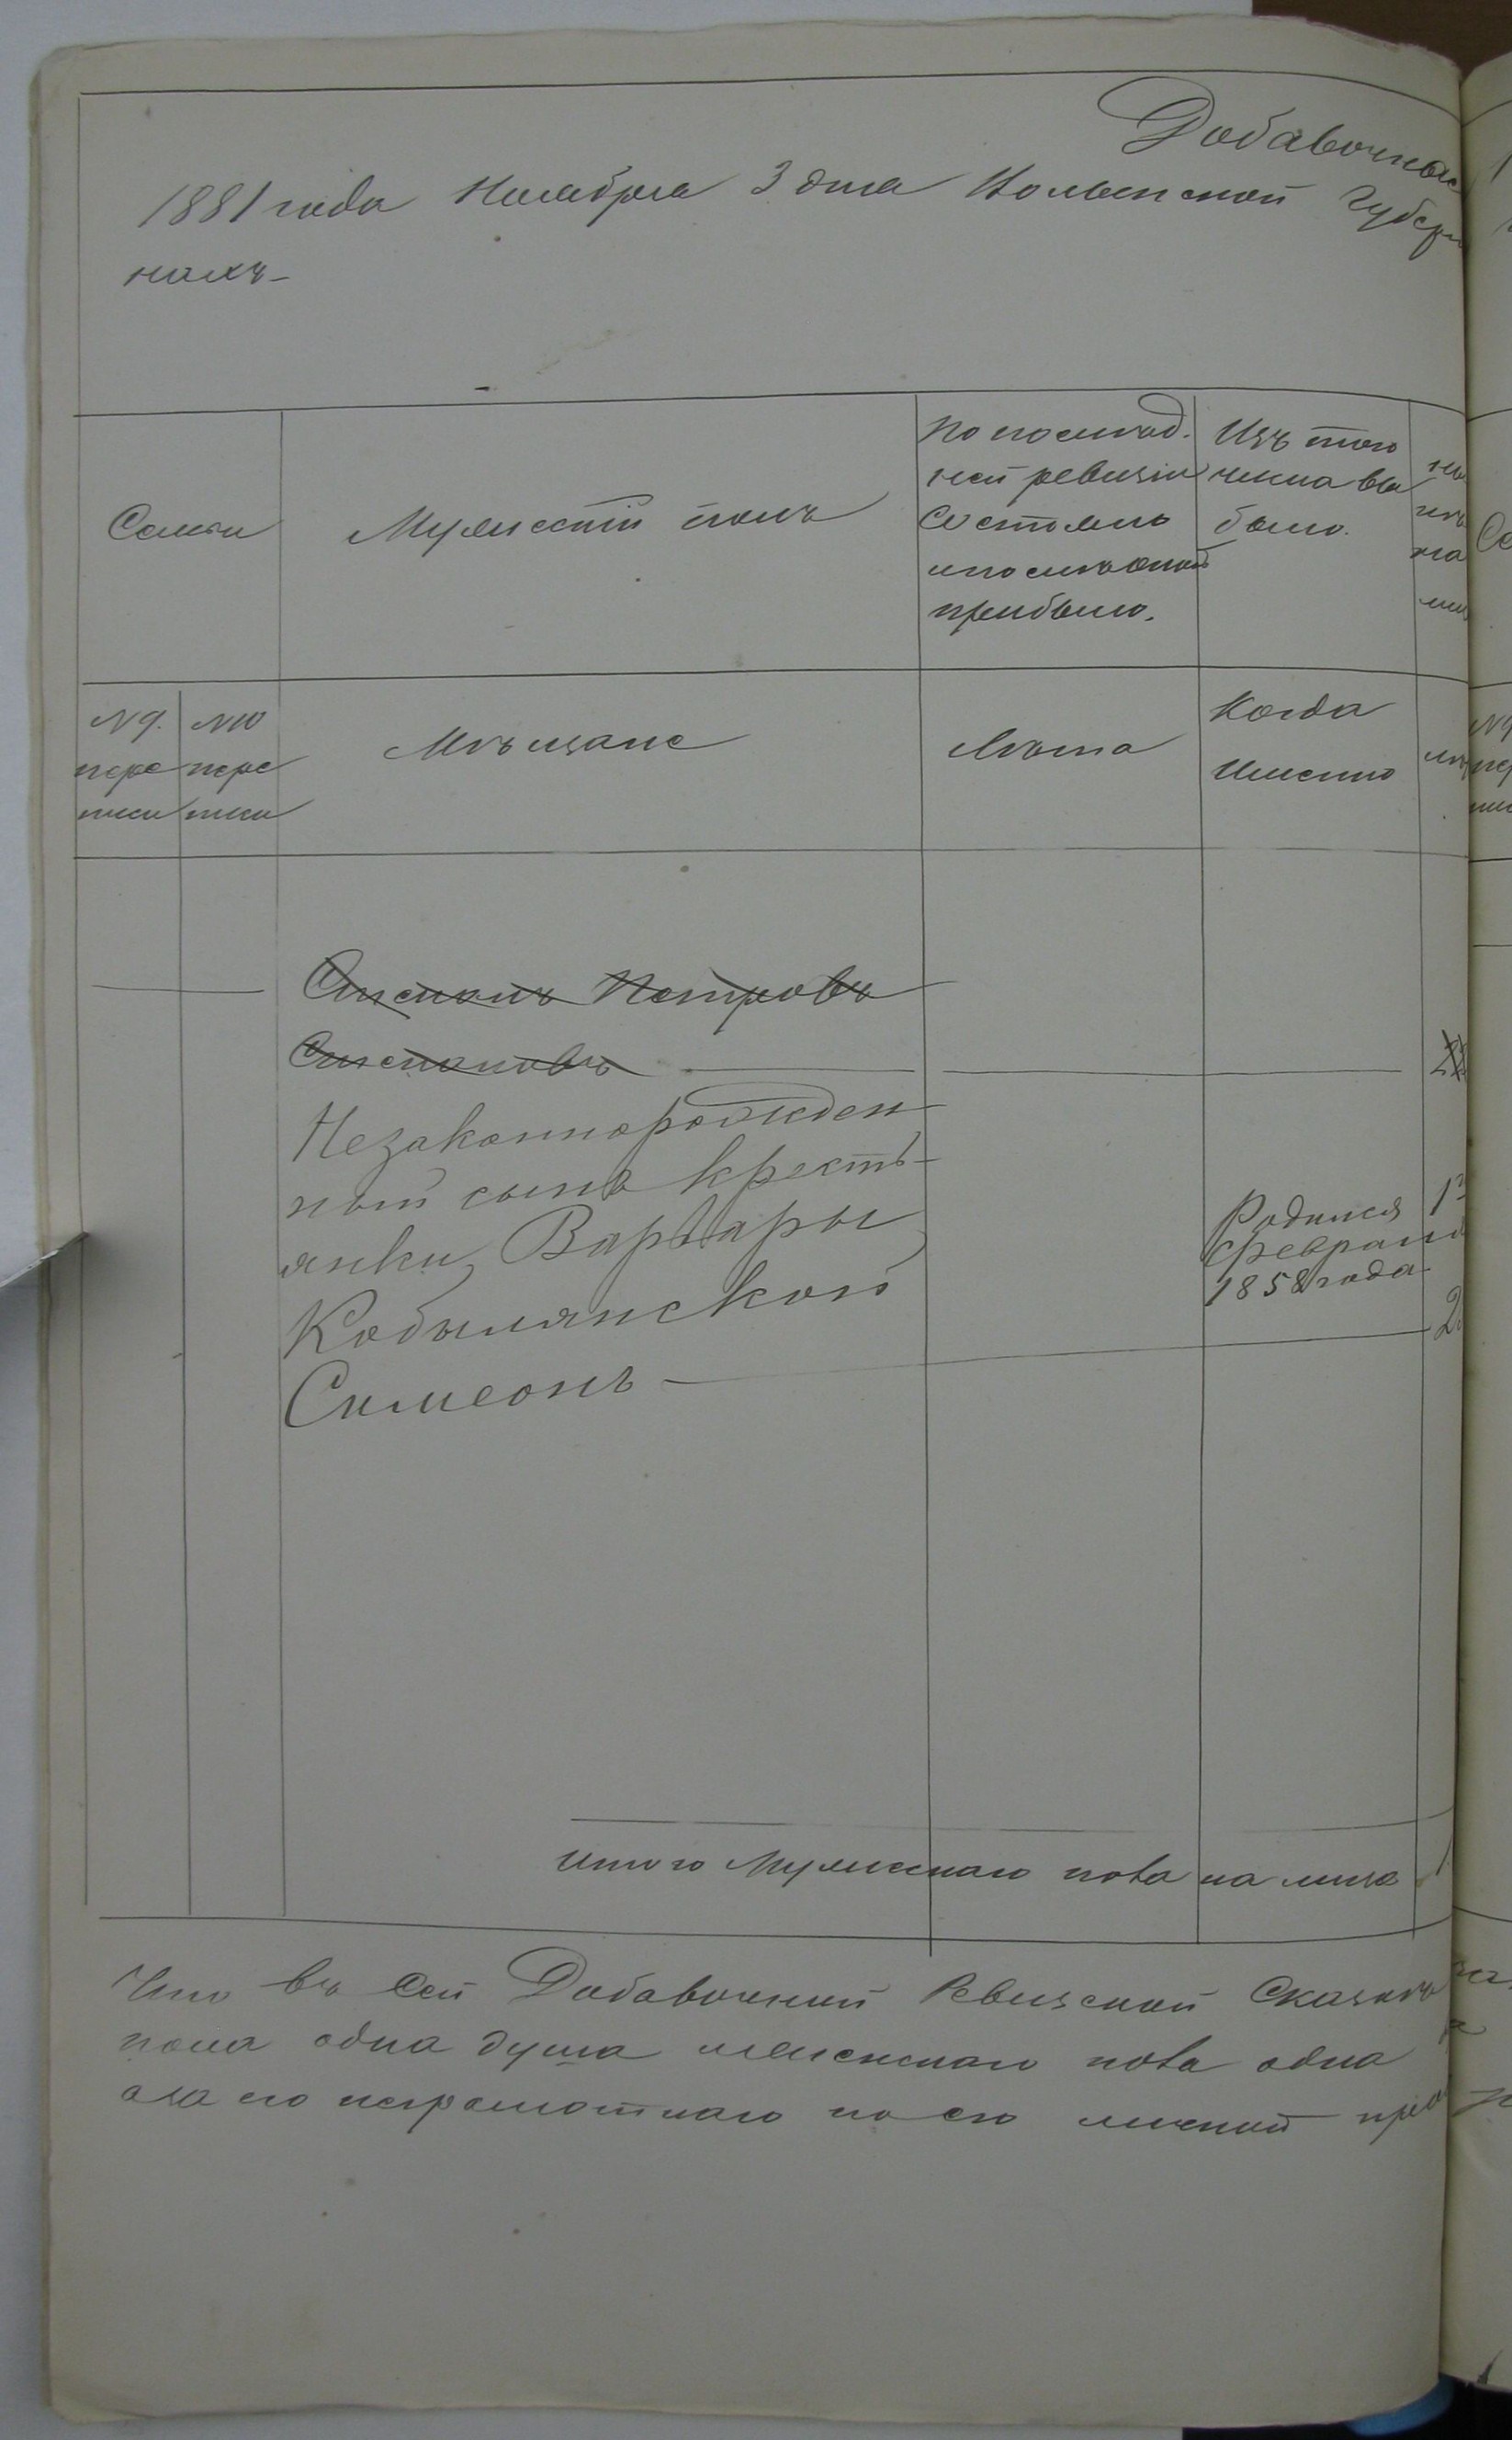 Добавочная
1881 года Ноября 3 дня Волынской Губерн
нахъ
Семьи
Мужескій полъ
По послѣд.
ней ревизіи
состояло
и послѣ оной
прибыло.
Изъ того
числа вы
было.
на
№ 9.
пере
писи
№ 10
пере
писи
Мѣщане
Лѣта
Когда
Именно
Степанъ Петровъ
Степановъ
Незаконнорожден
ный сынъ кресть-
янки Варвары
Кобылянской
Симеонъ
Родился 1
февраля
1858 года
2
Итого Мужескаго пола на лицо 1
Что въ сей Добавочной Ревизской Сказкѣ
пола одна душа женскаго пола одна
а за его неграмотнаго по его личной про